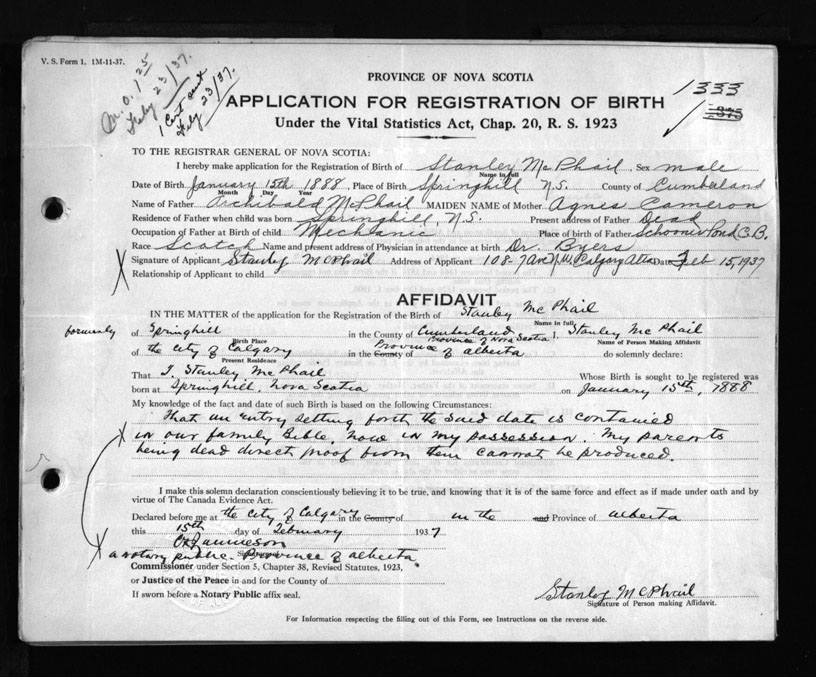 V. S. Form 1, 1M-11-37.
M.O. 1 25
Feby 23/37.
1 Cert sent
Feby 23/37.
PROVINCE OF NOVA SCOTIA
1333
APPLICATION FOR REGISTRATION OF BIRTH
Under the Vital Statistics Act, Chap. 20, R. S. 1923
TO THE REGISTRAR GENERAL OF NOVA SCOTIA:
I hereby make application for the Registration of Birth of Stanley McPhail Sex male
Name in full
Date of Birth January 15th 1888 Place of Birth Springhill N.S. County of Cumberland
Month Day Year
Name of Father Archibald McPhail MAIDEN NAME of Mother Agnes Cameron
Residence of Father when child was born Springhill, N.S. Present address of Father Dead
Occupation of Father at Birth of child Mechanic Place of birth of Father Schooner Pond C.B.
Race Scotch Name and present address of Physician in attendance at birth Dr. Byers
Signature of Applicant Stanley McPhail Address of Applicant 108-7 Ave N.W. Calgary Alta Date Feb 15, 1937
Relationship of Applicant to child
AFFIDAVIT
IN THE MATTER of the application for the Registration of the Birth of Stanley McPhail
Name in full
formerly of Springhill in the County of Cumberland Province of Nova Scotia I, Stanley McPhail
Birth Place Name of Person Making Affidavit
of the City of Calgary in the County of Province of Alberta do solemnly declare:
Present Residence
That I, Stanley McPhail Whose Birth is sought to be registered was
born at Springhill, Nova Scotia on January 15th, 1888
My knowledge of the fact and date of such Birth is based on the following Circumstances:
That an entry setting forth the said date is contained
in our family Bible, now in my possession. My parents
being dead direct proof from them cannot be produced.
I make this solemn declaration conscientiously believing it to be true, and knowing that it is of the same force and effect as if made under oath and by
virtue of The Canada Evidence Act.
Declared before me at the City of Calgary in the County of in the and Province of Alberta
this 15th day of February 1937
Jamieson
a notary public. Province of Alberta.
Commissioner under Section 5, Chapter 38, Revised Statutes, 1923,
or Justice of the Peace in and for the County of
If sworn before a Notary Public affix seal.
Stanley McPhail
Signature of Person making Affidavit.
For Information respecting the filling out of this Form, see Instructions on the reverse side.